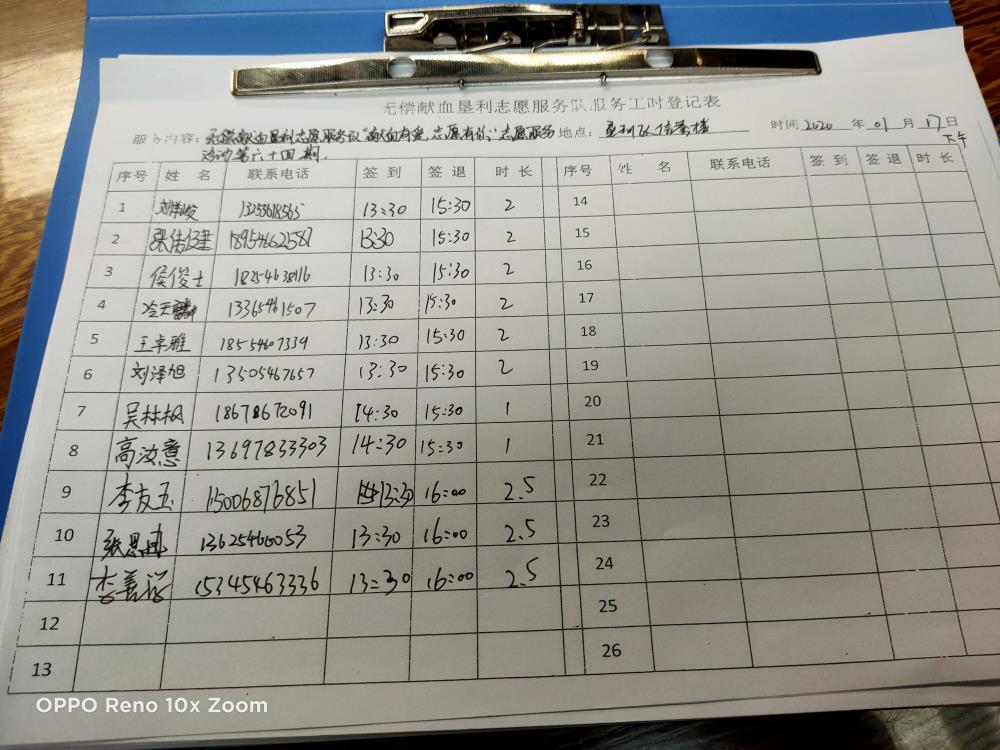 无偿献血垦利志愿服务队服务工时登记表
服务内容: 无偿献血垦利志愿服务队“献血有爱,志愿有你”志愿服务 地点: 时间 2020 年 01 月 17 日
活动第六十四期. 下午
序号 姓 名 联系电话 签 到 签 退 时 长 序号 姓 名 联系电话 签 到 签 退 时 长
1 13:30 15:30 2 14
2 18954662587 13:30 15:30 2 15
3 侯俊士 13:30 15:30 2 16
4 13365461507 13:30 15:30 2 17
5 王卓雅 18554607339 13:30 15:30 2 18
6 刘泽旭 13505467657 13:30 15:30 2 19
7 吴林枫 18678672091 14:30 15:30 1 20
8 高汝意 13697833303 14:30 15:30 1 21
9 李友玉 15006876851 13:30 16:00 2.5 22
10 13625460053 13:30 16:00 2.5 23
11 李善 15345463336 13:30 16:00 2.5 24
12 25
13 26
OPPO Reno 10x Zoom